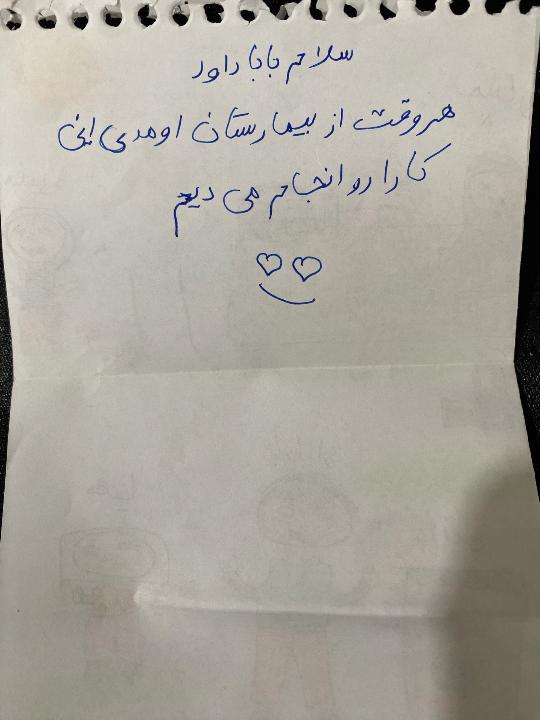 سلام بابا داود
هروقت از بیمارستان اومدی این
کارا رو انجام می دیم